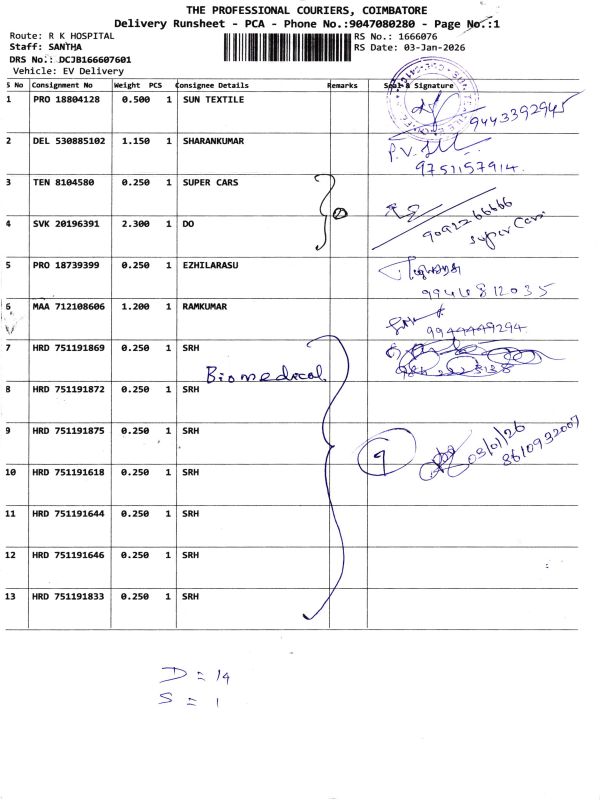 THE PROFESSIONAL COURIERS, COIMBATORE
Delivery Runsheet - PCA - Phone No.:9047080280 - Page No.:1
Route: R K HOSPITAL
RS No.: 1666076
Staff: SANTHA
RS Date: 03-Jan-2026
DRS No.: DCJB166607601
Vehicle: EV Delivery
S No Consignment No Weight PCS Consignee Details Remarks Seal & Signature
1 PRO 18804128 0.500 1 SUN TEXTILE 9443392945
2 DEL 530885102 1.150 1 SHARANKUMAR P.V.
9751157914
3 TEN 8104580 0.250 1 SUPER CARS
4 SVK 20196391 2.300 1 DO 9092266666
Super Cars
5 PRO 18739399 0.250 1 EZHILARASU
9946812035
6 MAA 712108606 1.200 1 RAMKUMAR
9944449294
7 HRD 751191869 0.250 1 SRH
Biomedical
8 HRD 751191872 0.250 1 SRH
9 HRD 751191875 0.250 1 SRH 9 03/01/26
8610932007
10 HRD 751191618 0.250 1 SRH
11 HRD 751191644 0.250 1 SRH
12 HRD 751191646 0.250 1 SRH
13 HRD 751191833 0.250 1 SRH
D = 14
S = 1